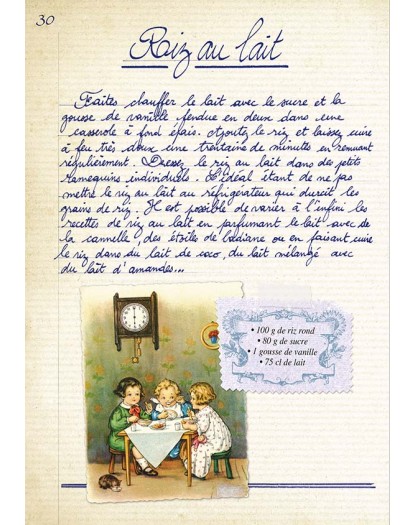 30
Riz au lait
Faites chauffer le lait avec le sucre et la
gousse de vanille fendue en deux dans une
casserole à fond épais. Ajoutez le riz et laissez cuire
à feu très doux une trentaine de minutes en remuant
régulièrement. Dressez le riz au lait dans des petits
ramequins individuels. L'idéal étant de ne pas
mettre le riz au lait au réfrigérateur qui durcit les
grains de riz. Il est possible de varier à l'infini les
recettes de riz au lait en parfumant le lait avec de
la cannelle, des étoiles de badiane ou en faisant cuire
le riz dans du lait de coco, du lait mélangé avec
du lait d'amandes...
• 100 g de riz rond
• 80 g de sucre
• 1 gousse de vanille
• 75 cl de lait